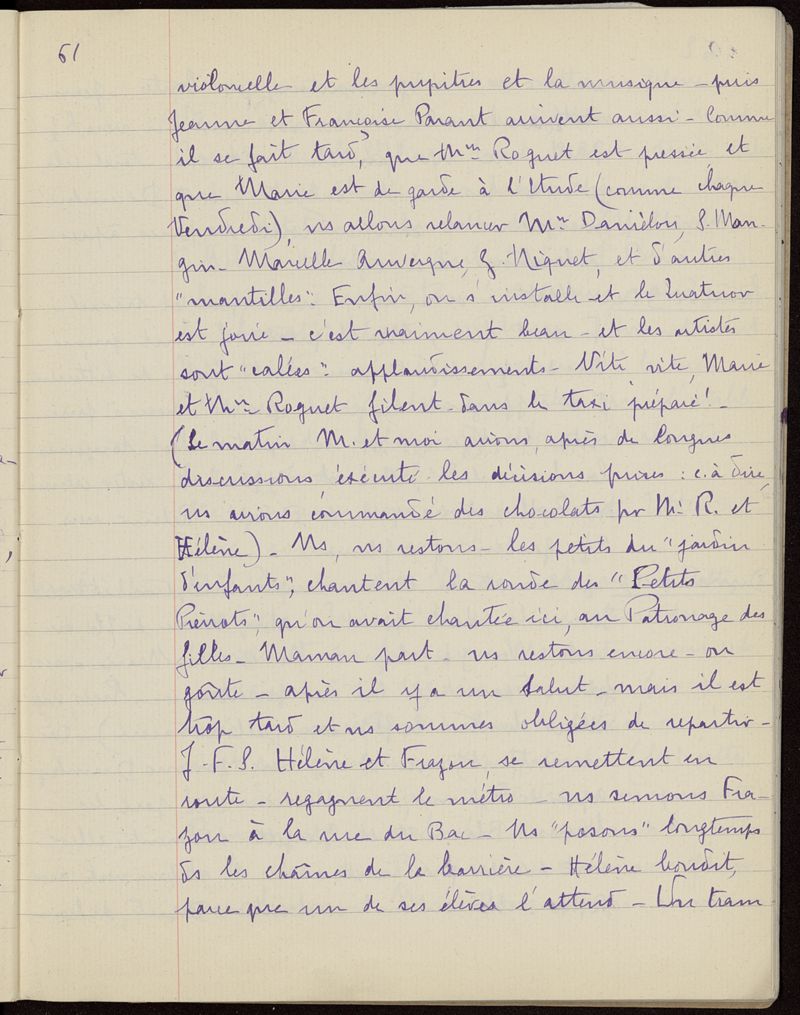 61
violoncelle et les pupitres et la musique - puis
Jeanne et Françoise Parant arrivent aussi - Comme
il se fait tard, que Mme Roguet est pressée et
que Marie est de garde à l'Etude (comme chaque
Vendredi), ns allons relancer Mme Daniélou, S. Man-
gin - Marcelle Auvergne, G. Niquet, et d'autres
"mantilles". Enfin, on s'installe et le Quatuor
est joué - c'est vraiment beau - et les artistes
sont "calées" - applaudissements - Vite, vite, Marie
et Mme Roguet filent dans le taxi préparé! -
(Le matin M. et moi avions, après de longues
discussions exécuté les décisions prises : c. à dire,
ns avions commandé des chocolats pr Me R. et
Hélène) - Ns, ns restons - les petits du "jardin
d'enfants", chantent la ronde des "Petits
Pierrots", qu'on avait chantée ici, au Patronage des
filles - Maman part - ns restons encore - on
goûte - après il y a un Salut - mais il est
trop tard et ns sommes obligées de repartir -
J. F. S. Hélène et Frazon, se remettent en
route - regagnent le métro - ns semons Fra-
zon à la rue du Bac - Ns "posons" longtemps
ds les chaînes de la barrière - Hélène bondit,
parce que un de ses élèves l'attend - Un tram